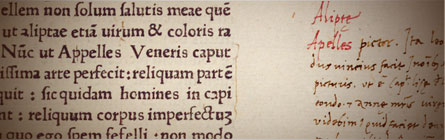 ellem non solum salutis meae quē
ut aliptae etiā uirium & coloris ra
Nūc ut Appelles Veneris caput
issima arte perfecit: reliquam partē
quit : sic quidam homines in capi
nt : reliquum corpus imperfectū
quo ego spem fefelli : non modo
Alipte
Apelles pictor. Ita Leo
dus uincius facit in
picturis, ut
condo. & Anne